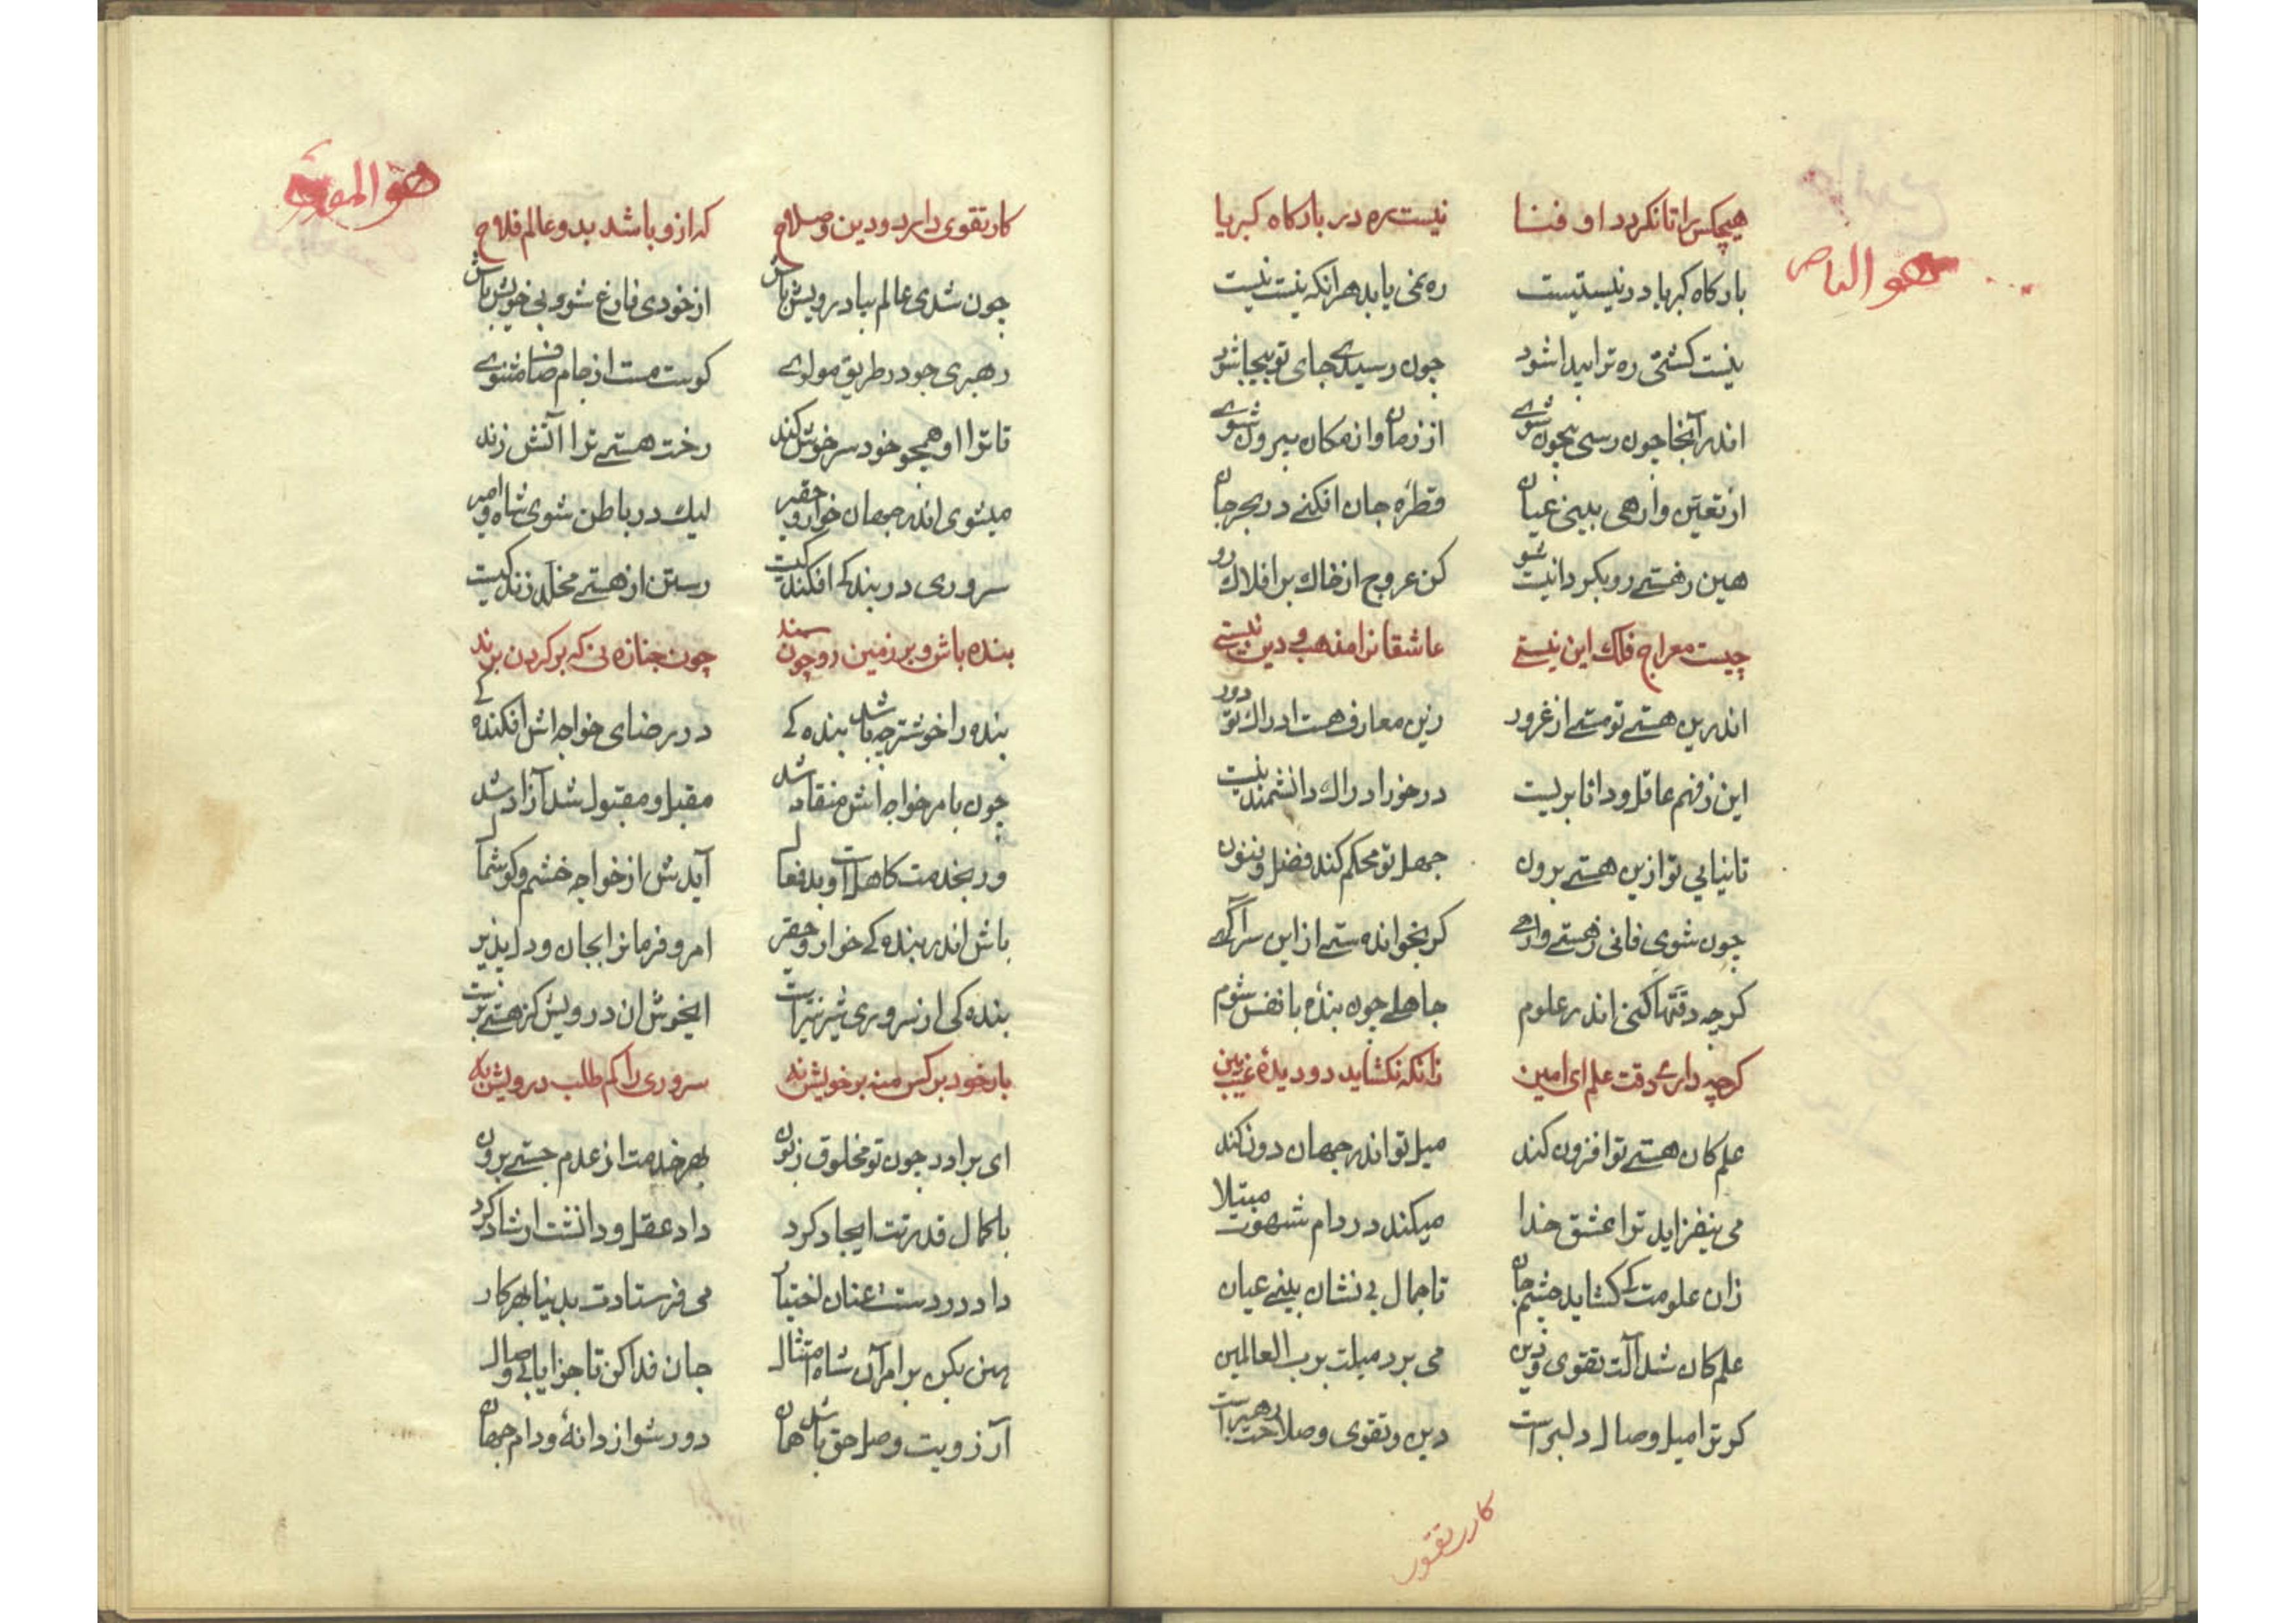 هو الناصر
هیچکس را تا نکردد او فنا نیست ره در بارکاه کبریا
بارکاه کبریا در نیستیست ره نمی یابد هر انکه نیست نیست
نیست کشتی ره ترا پیدا شود چون رسیدے جای تو بیجا شود
اندر آنجا چون رسی بیچون شوے از زمان و از مکان بیرون شوے
از تعیّن وارهی بینی عیان قطرٔه جان افکنے در بحر جان
هین ز هستے رو بکردان نیست شو کن عروج از خاك بر افلاك رو
چیست معراج فلك این نیستے عاشقانرا مذهب و دین نیستے
اندرین هستے تو مستے از غرور زین معارف هست ادراك تو دور
این ز فهم عاقل و دانا بریست در خور ادراك دانشمند نیست
تا نیایی تو ازین هستے برون جهل تو محکم کند فضل و فنون
چون شوی فانی ز هستے وارهے کر بخوانده ستے از این سر آکهے
کرچه دقتها کنی اندر علوم جاهلے چون بندٔه با نفس شوم
کرچه دارے دقت علم ای امین زانکه نکشاید دو دیدٔه غیب بین
علم کان هستے تو افزون کند میل تو اندر جهان دون کند
می نیفزاید ترا عشق خدا میکند در دام شهوت مبتلا
زان علومت کے کشاید چشم جان تا جمال بی نشان بینے عیان
علم کان شد آلت تقوی و دین می برد میلت برب العالمین
کر ترا میل وصال دلبر است دین و تقوی و صلاحت رهبر است
کار تقوی
هو الموفق
کار تقوی دارد و دین و صلاح که ازو باشد بدو عالم فلاح
چون شدی عالم بیا درویش باش از خودی فارغ شو و بی خویش باش
رهبری جو در طریق مولوے کوست مست از جام صاف مثنوے
تا ترا او همچو خود سرخوش کند رخت هستے ترا آتش زند
میشوی اندر جهان خوار و حقیر لیك در باطن شوی شاه و امیر
سروری در بندکے افکندکیست رستن از هستے مخلّد زندکیست
بنده باش و بر زمین رو چون سمند چون جنازه نی که بر کردن برند
بنده را خوشتر چه باشد بنده کے در رضای خواجه اش افکنده کے
چون بامر خواجه اش منقاد شد مقبل و مقبول شد آزاد شد
ور بخدمت کاهل آو بد فعال آیدش از خواجه خشم و کوشمال
باش اندر بنده کے خوار و حقیر امر و فرمانرا بجان و دل پذیر
بنده کی از سروری شیرینتر است ایخوش ان درویش کز هستے برست
بار خود بر کس منه بر خویش نه سروری را کم طلب درویش به
ای برادر چون تو مخلوق زبون بهر خدمت از عدم جستے برون
با کمال قدرتت ایجاد کرد داد عقل و دانشت ارشاد کرد
داد در دستت عنان اختیار می فرستادت بدنیا بهر کار
هین بکن بر امر آن شاه امتثال جان فدا کن تا جزا یابی وصال
آرزویت وصل حق باشد همان دور شو از دانهٔ و دام جهان